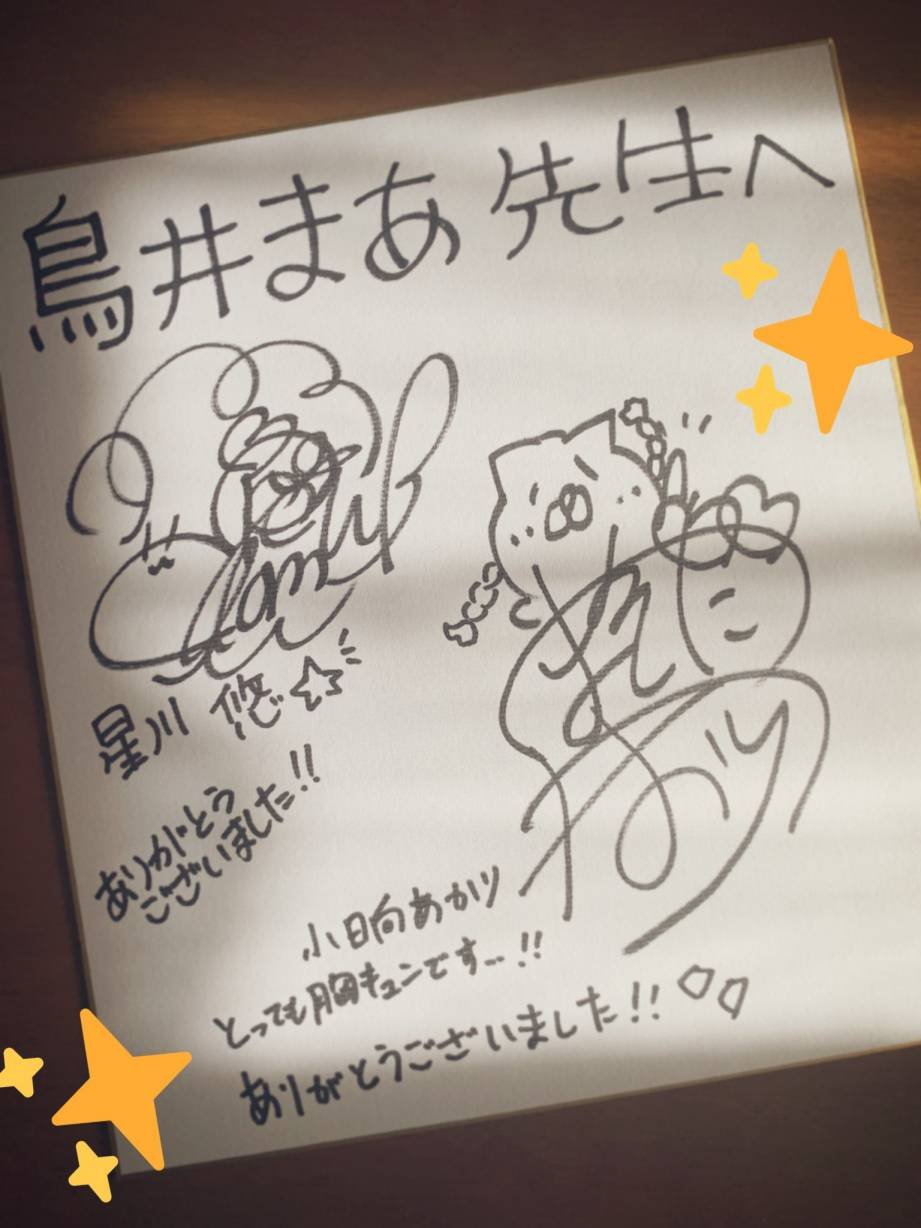 鳥井まあ先生へ
星川 悠☆
ありがとう
ございました!!
小日向あかり
とっても胸キュンです…!!
ありがとうございました!!